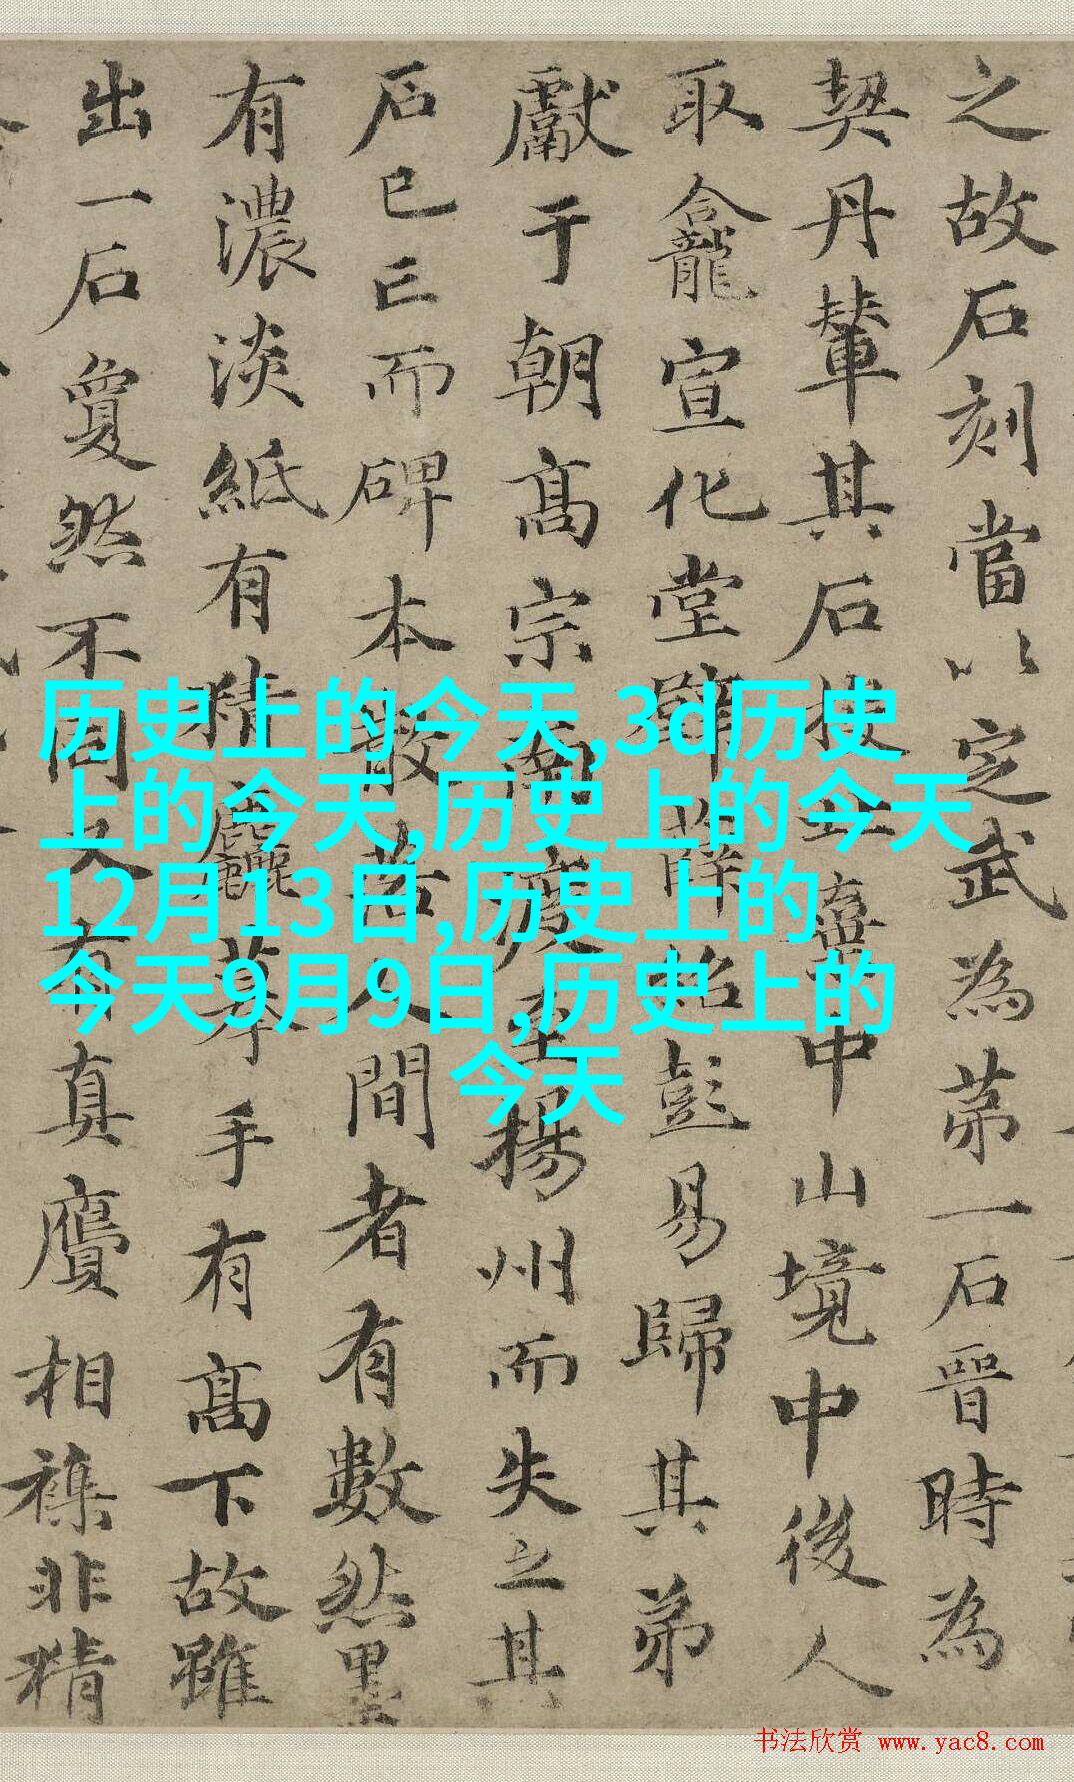 之故石刻當以定武為苐一石晉時為
契丹輦其石投之中山境中後人
取龕宣化堂薛紹彭易歸其弟
獻于朝高宗南渡至揚州而失之其
石已亡而碑本散落人間者有數然墨
有濃淡紙有精麤摹手有高下故雖
出一石夐然不同又有真贋相襍非精
历史上的今天,3d历史
上的今天,历史上的今天
12月13日,历史上的
今天9月9日,历史上的
今天
书法欣赏 www.yac8.com